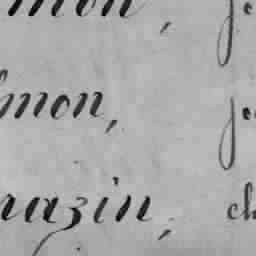 mon, je
mon, je
razin, ch